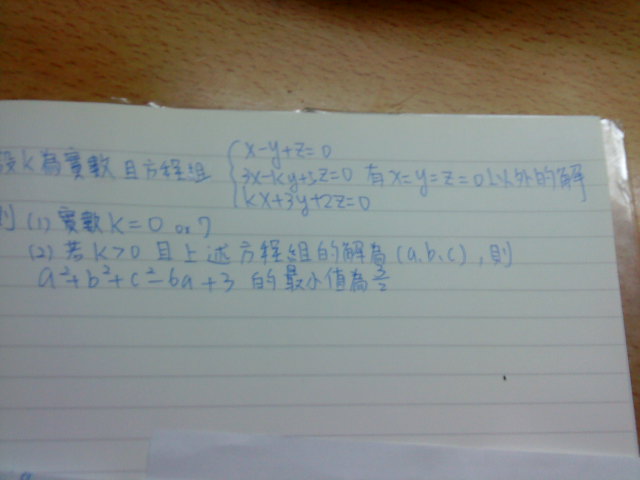 設k為實數且方程組 { x-y+z=0
3x-ky+5z=0 有x=y=z=0以外的解
kx+3y+2z=0
則 (1) 實數k=0 or 7
(2) 若k>0 且上述方程組的解為(a,b,c),則
a²+b²+c²-6a+3 的最小值為3/2